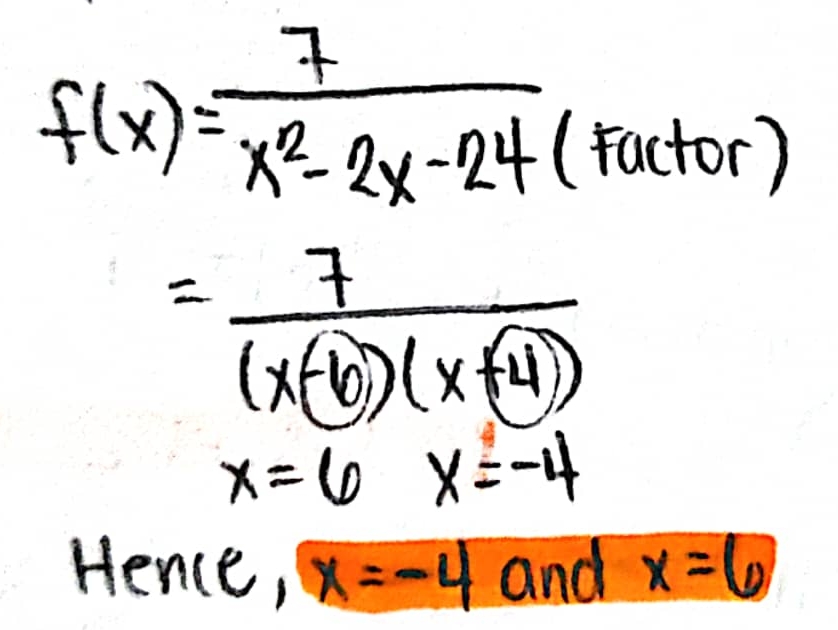 7
f(x) = ―――
x² - 2x - 24 (Factor)
= 7
―――
(x-6)(x+4)
x = 6 x = -4
Hence, x = -4 and x = 6